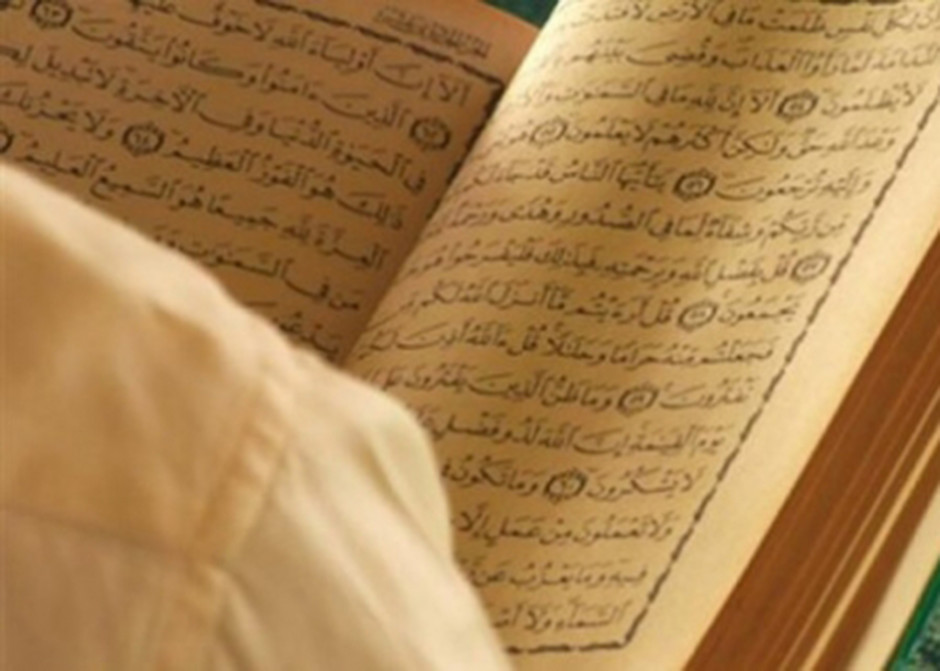 أَنَّ لِكُلِّ نَفْسٍ ظَلَمَتْ مَا فِى ٱلْأَرْضِ لَٱفْتَدَتْ
ٱلنَّدَامَةَ لَمَّا رَأَوُا۟ ٱلْعَذَابَ وَقُضِىَ بَيْنَهُم
لَا يُظْلَمُونَ ٥٤ أَلَآ إِنَّ لِلَّهِ مَا فِى ٱلسَّمَٰوَٰتِ
وَعْدَ ٱللَّهِ حَقٌّ وَلَٰكِنَّ أَكْثَرَهُمْ لَا يَعْلَمُونَ ٥٥ هُوَ
وَإِلَيْهِ تُرْجَعُونَ ٥٦ يَٰٓأَيُّهَا ٱلنَّاسُ قَدْ جَآءَتْكُم
مِّن رَّبِّكُمْ وَشِفَآءٌ لِّمَا فِى ٱلصُّدُورِ وَهُدًى وَرَحْمَةٌ
٥٧ قُلْ بِفَضْلِ ٱللَّهِ وَبِرَحْمَتِهِۦ فَبِذَٰلِكَ فَلْيَفْرَحُوا۟ هُوَ
يَجْمَعُونَ ٥٨ قُلْ أَرَءَيْتُم مَّآ أَنزَلَ ٱللَّهُ لَكُم
فَجَعَلْتُم مِّنْهُ حَرَامًا وَحَلَٰلًا قُلْ ءَآللَّهُ أَذِنَ لَكُمْ
تَفْتَرُونَ ٥٩ وَمَا ظَنُّ ٱلَّذِينَ يَفْتَرُونَ عَلَى
يَوْمَ ٱلْقِيَٰمَةِ إِنَّ ٱللَّهَ لَذُو فَضْلٍ
لَا يَشْكُرُونَ ٦٠ وَمَا تَكُونُ
وَلَا تَعْمَلُونَ مِنْ عَمَلٍ إِلَّا
فِيهِ وَمَا يَعْزُبُ عَن
ٱلسَّمَآءِ وَلَآ
أَلَآ إِنَّ أَوْلِيَآءَ ٱللَّهِ لَا خَوْفٌ عَلَيْهِمْ
ٱلَّذِينَ ءَامَنُوا۟ وَكَانُوا۟ يَتَّقُونَ ٦٣
فِى ٱلْحَيَوٰةِ ٱلدُّنْيَا وَفِى ٱلْءَاخِرَةِ لَا تَبْدِيلَ
ذَٰلِكَ هُوَ ٱلْفَوْزُ ٱلْعَظِيمُ ٦٤ وَلَا يَحْزُنكَ
ٱلْعِزَّةَ لِلَّهِ جَمِيعًا هُوَ ٱلسَّمِيعُ ٱلْعَلِيمُ
مَن فِى ٱلسَّمَٰوَٰتِ وَمَن
يَدْعُونَ